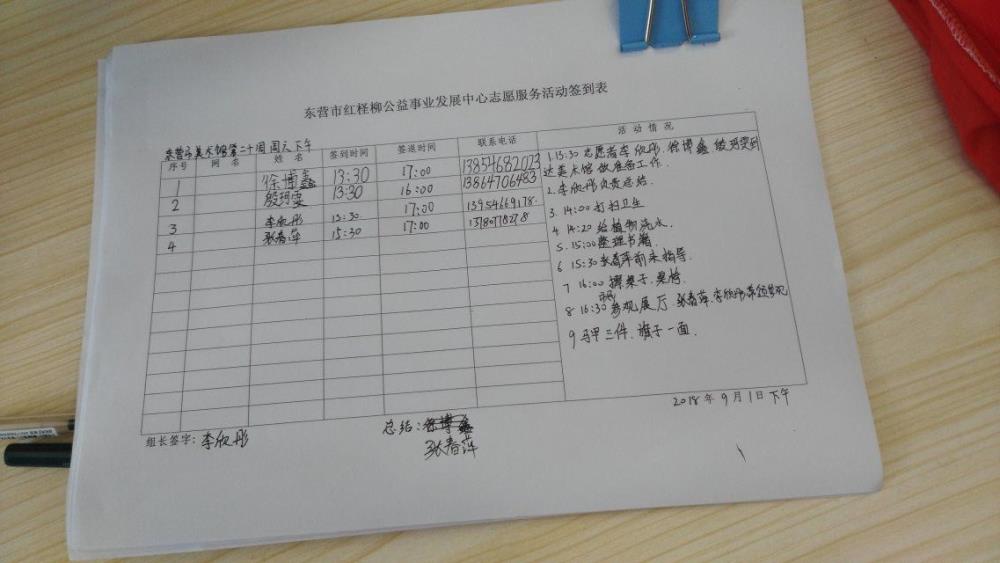 东营市红柽柳公益事业发展中心志愿服务活动签到表
东营市美术馆第二十周 周六下午
序号 网 名 姓 名 签到时间 签退时间 联系电话 活 动 情 况
1 徐博鑫 13:30 17:00 13854682023
2 殷玥雯 13:30 16:00 13864706483
3 李欣彤 13:30 17:00 13954669178
4 张春萍 15:30 17:00
1.13:30 志愿者李欣彤.徐博鑫 殷玥雯到
达美术馆 做准备工作.
2.李欣彤负责总结.
3. 14:00 打扫卫生
4. 14:20 给植物浇水.
5. 15:00 整理书籍.
6 15:30 张春萍前来指导.
7 16:00 摆桌子.桌椅
8 16:30 市民参观展厅 张春萍.李欣彤
9 马甲三件.旗子一面.
2018年9月1日下午
组长签字：李欣彤
总结：徐博鑫
张春萍